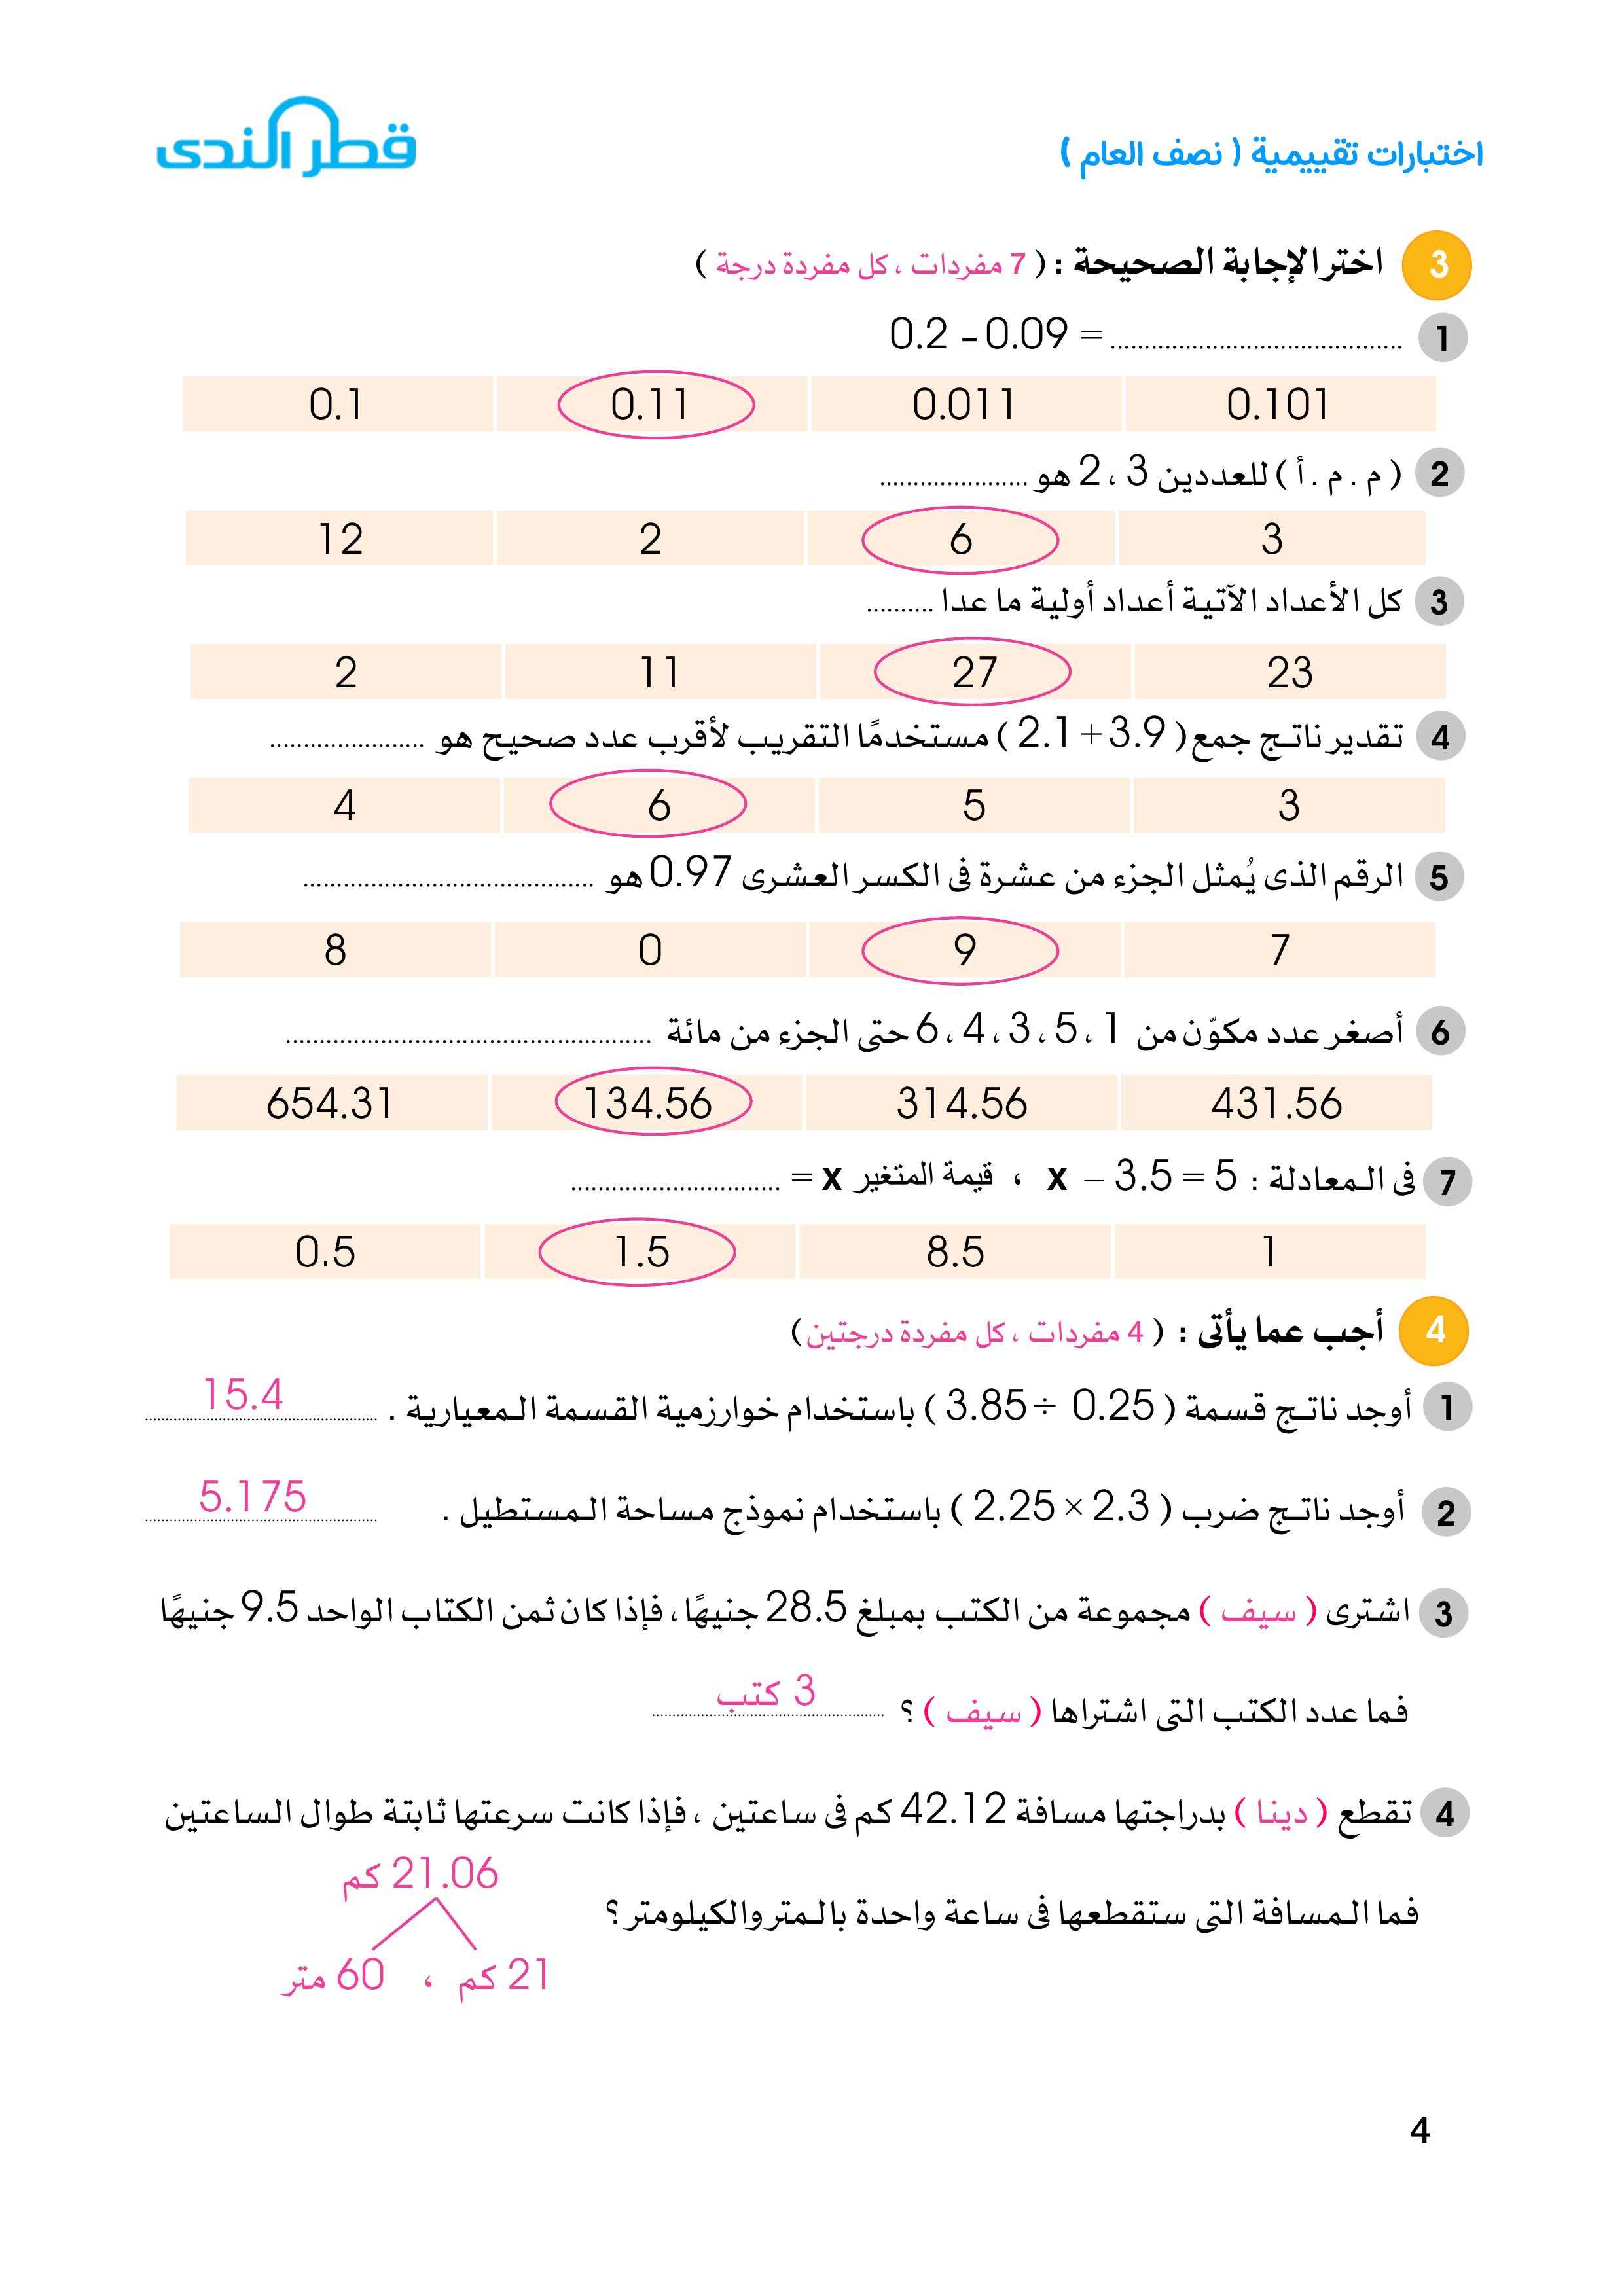 اختبارات تقييمية ( نصف العام )
قطر الندى
3 اختر الإجابة الصحيحة : ( 7 مفردات ، كل مفردة درجة )
1 0.2 - 0.09 = ............
0.1 0.11 0.011 0.101
2 ( م . م . أ ) للعددين 3 ، 2 هو ............
12 2 6 3
3 كل الأعداد الآتية أعداد أولية ما عدا ..........
2 11 27 23
4 تقدير ناتج جمع ( 2.1 + 3.9 ) مستخدمًا التقريب لأقرب عدد صحيح هو ............
4 6 5 3
5 الرقم الذى يُمثل الجزء من عشرة فى الكسر العشرى 0.97 هو ............
8 0 9 7
6 أصغر عدد مكوّن من 1 ، 5 ، 3 ، 4 ، 6 حتى الجزء من مائة ............
654.31 134.56 314.56 431.56
7 فى المعادلة : x – 3.5 = 5 ، قيمة المتغير x = ............
0.5 1.5 8.5 1
4 أجب عما يأتى : ( 4 مفردات ، كل مفردة درجتين )
1 أوجد ناتج قسمة ( 3.85 ÷ 0.25 ) باستخدام خوارزمية القسمة المعيارية . 15.4
2 أوجد ناتج ضرب ( 2.25 × 2.3 ) باستخدام نموذج مساحة المستطيل . 5.175
3 اشترى ( سيف ) مجموعة من الكتب بمبلغ 28.5 جنيهًا ، فإذا كان ثمن الكتاب الواحد 9.5 جنيهًا
فما عدد الكتب التى اشتراها ( سيف ) ؟ 3 كتب
4 تقطع ( دينا ) بدراجتها مسافة 42.12 كم فى ساعتين ، فإذا كانت سرعتها ثابتة طوال الساعتين
فما المسافة التى ستقطعها فى ساعة واحدة بالمتر والكيلومتر ؟
21.06 كم
21 كم ، 60 متر
4